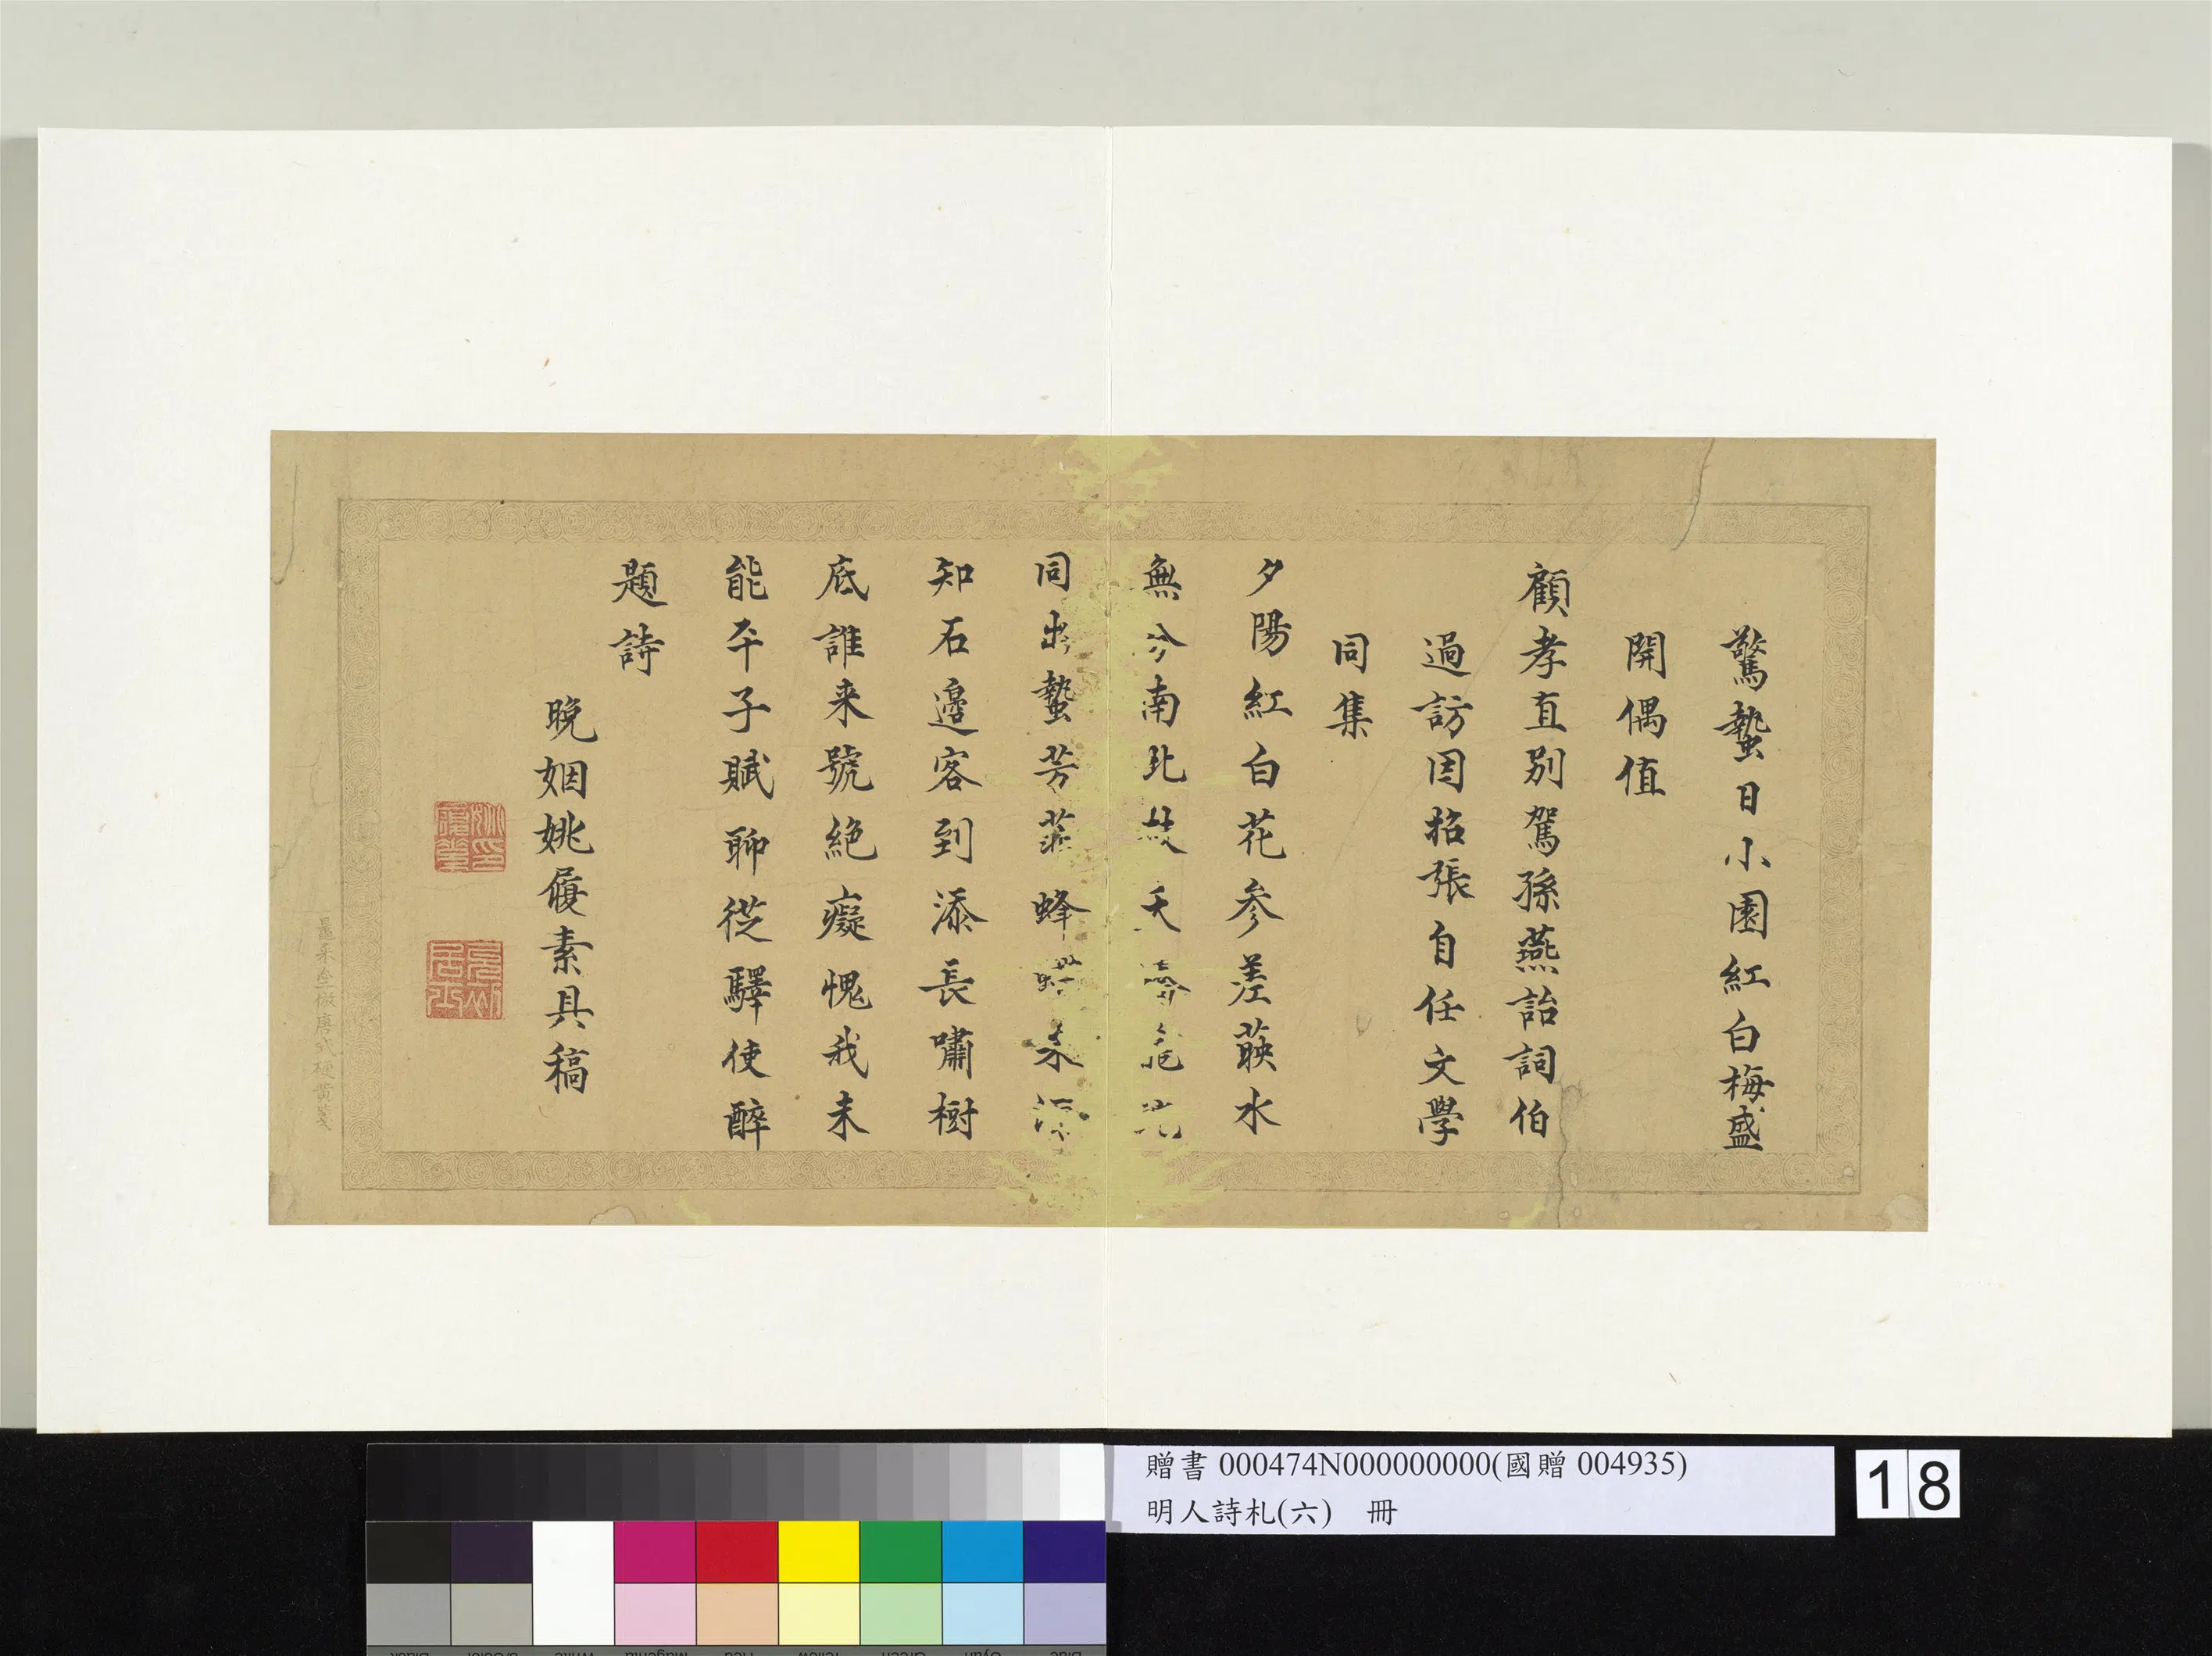 驚蟄日小園紅白梅盛
開偶值
顧孝直別駕孫燕詒詞伯
過訪因招張自任文學
同集
夕陽紅白花參差蔭水
無分南北枝天
同出蟄芳 蜂
知石邊客到添長嘯樹
底誰来號絕癡愧我未
能平子賦聊從驛使醉
題詩
晚姻姚履素具稿
贈書 000474N000000000(國贈 004935)
明人詩札(六) 冊
18